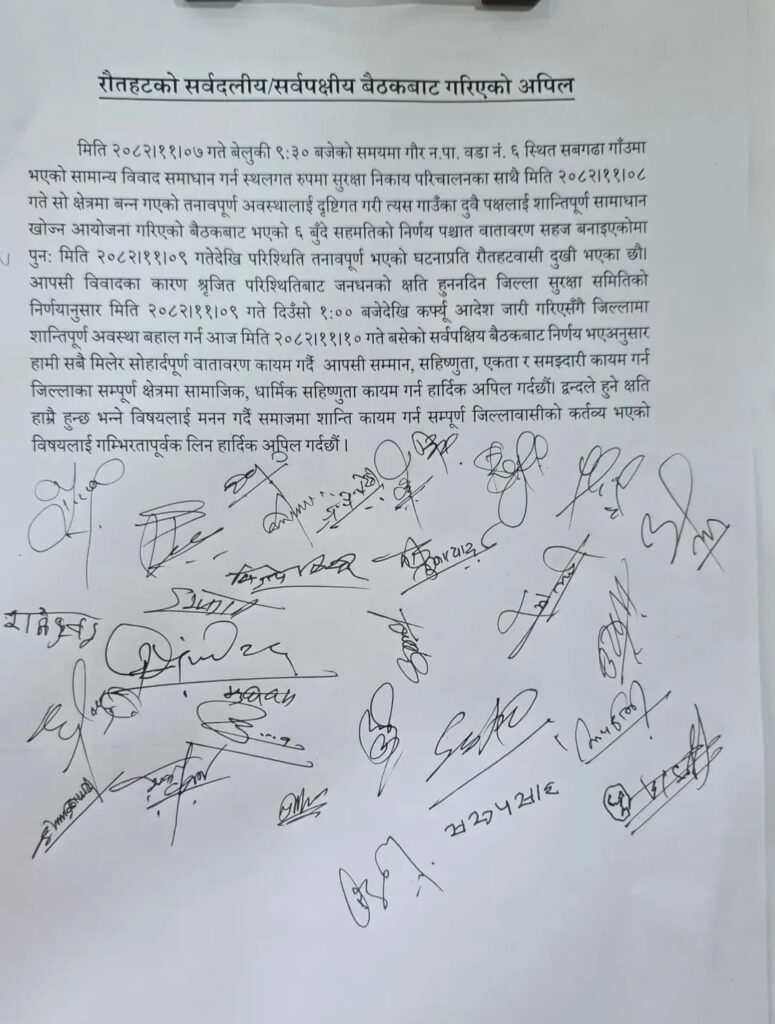 रौतहटको सर्वदलीय/सर्वपक्षीय बैठकबाट गरिएको अपिल
मिति २०८२।११।०७ गते बेलुकी ९:३० बजेको समयमा गौर न.पा. वडा नं. ६ स्थित सबगढा गाँउमा
भएको सामान्य विवाद समाधान गर्न स्थलगत रुपमा सुरक्षा निकाय परिचालनका साथै मिति २०८२।११।०८
गते सो क्षेत्रमा बन्न गएको तनावपूर्ण अवस्थालाई दृष्टिगत गरी त्यस गाउँका दुवै पक्षलाई शान्तिपूर्ण समाधान
खोज्न आयोजना गरिएको बैठकबाट भएको ६ बुँदे सहमतिको निर्णय पश्चात वातावरण सहज बनाइएकोमा
पुन: मिति २०८२।११।०९ गतेदेखि परिश्थिति तनावपूर्ण भएको घटनाप्रति रौतहटवासी दुखी भएका छौ।
आपसी विवादका कारण श्रृजित परिश्थितिबाट जनधनको क्षति हुननदिन जिल्ला सुरक्षा समितिको
निर्णयानुसार मिति २०८२।११।०९ गते दिउँसो १:०० बजेदेखि कर्फ्यू आदेश जारी गरिएसँगै जिल्लामा
शान्तिपूर्ण अवस्था बहाल गर्न आज मिति २०८२।११।१० गते बसेको सर्वपक्षिय बैठकबाट निर्णय भएअनुसार
हामी सबै मिलेर सोहार्दपूर्ण वातावरण कायम गर्दै आपसी सम्मान, सहिष्णुता, एकता र समझ्दारी कायम गर्न
जिल्लाका सम्पूर्ण क्षेत्रमा सामाजिक, धार्मिक सहिष्णुता कायम गर्न हार्दिक अपिल गर्दछौं। द्वन्दले हुने क्षति
हाम्रै हुन्छ भन्ने विषयलाई मनन गर्दै समाजमा शान्ति कायम गर्न सम्पूर्ण जिल्लावासीको कर्तव्य भएको
विषयलाई गम्भिरतापूर्वक लिन हार्दिक अपिल गर्दछौं ।